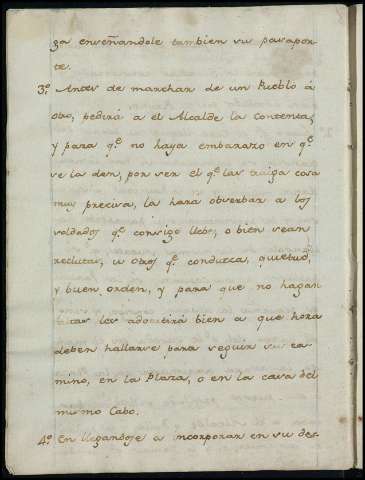 ga enseñandole tambien su pasapor-
te.
3º. Antes de marchar de un Pueblo á
otro, pedirá a el Alcalde la contenta,
y para qe. no haya embarazo en qe.
se la den, por ser el qe. las traiga cosa
muy precisa, la hará observar a los
soldados qe. consigo lleve, o bien sean
reclutas, u otros qe. conduzca, quietud,
y buen orden, y para que no hagan
faltas les advertirá bien a que hora
deben hallarse para seguir su ca-
mino, en la Plaza, o en la casa del
mismo Cabo.
4º. En llegandose a incorporar en su des-